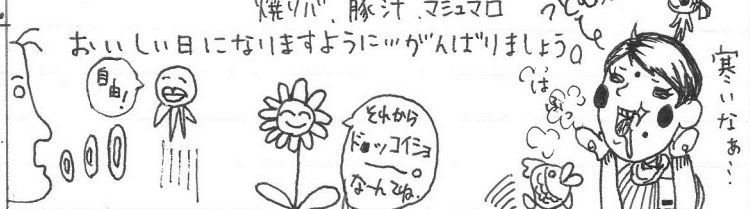 焼リバ、豚汁、マシュマロ
おいしい日になりますように…がんばりましょう。
自由!
それから
ドッコイショ
〜。
なーんてね。
はふ
寒いなぁ…